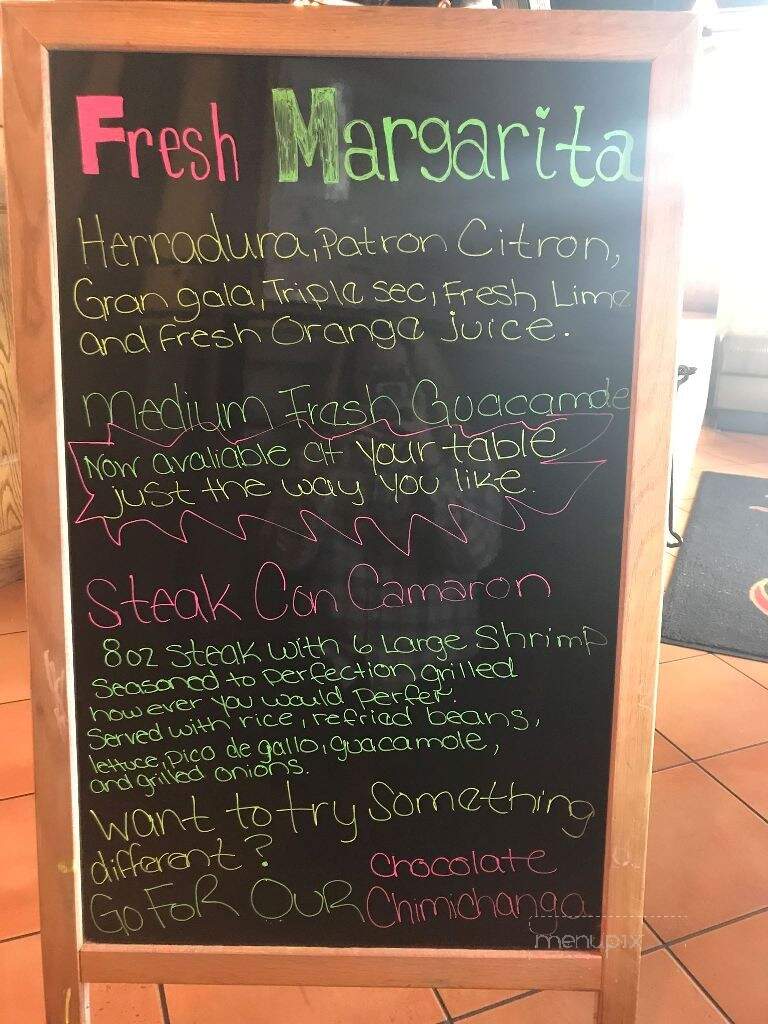 Fresh Margarita
Herradura, Patron Citron,
Gran gala, Triple sec, Fresh Lime
and Fresh Orange juice.
Medium Fresh Guacamole
Now avaliable at your table
just the way you like.
Steak Con Camaron
8oz Steak with 6 Large Shrimp
Seasoned to perfection grilled
however you would Perfer.
Served with rice, refried beans,
lettuce, pico de gallo, guacamole,
and grilled onions.
Want to try Something
different?
Chocolate
Go FoR OUR Chimichanga
menupix